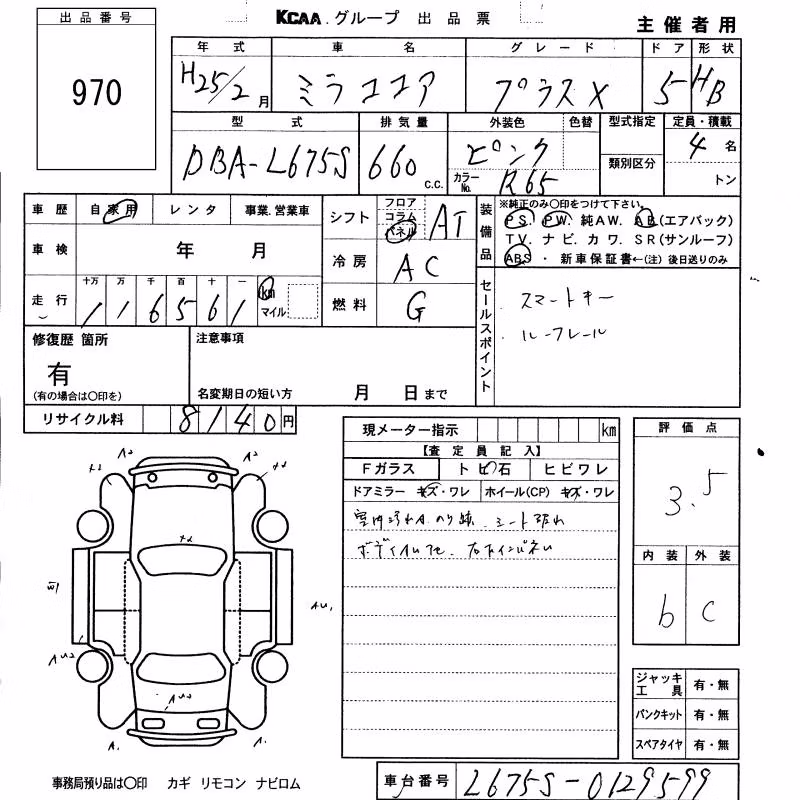 KCAA.グループ 出品票
主催者用
出品番号
970
年式 車名 グレード ドア 形状
H25/2月 ミラココア プラスX 5 HB
型式 排気量 外装色 色替 型式指定 定員・積載
DBA-L675S 660 c.c. ピンク 類別区分 4名
カラーNo. R65 トン
車歴 自家用 レンタ 事業.営業車
シフト フロア コラム パネル AT
車検 年 月
冷房 AC
走行 十万 万 千 百 十 一
1 1 6 5 6 1 km マイル
燃料 G
装備品 ※純正のみ〇印をつけて下さい。
PS. PW. 純AW. AB(エアバック)
TV. ナビ. カワ. SR(サンルーフ)
ABS ・ 新車保証書←(注) 後日送りのみ
セールスポイント
スマートキー
ルーフレール
修復歴 箇所
有
(有の場合は〇印を)
注意事項
名変期日の短い方 月 日まで
リサイクル料 8140円
現メーター指示 km
【査定員記入】
Fガラス トビ石 ヒビワレ
ドアミラー キズ・ワレ ホイール(CP) キズ・ワレ
評価点
3.5
内装 外装
b C
ジャッキ工具 有・無
パンクキット 有・無
スペアタイヤ 有・無
事務局預り品は〇印 カギ リモコン ナビロム
車台番号 L675S-0129599